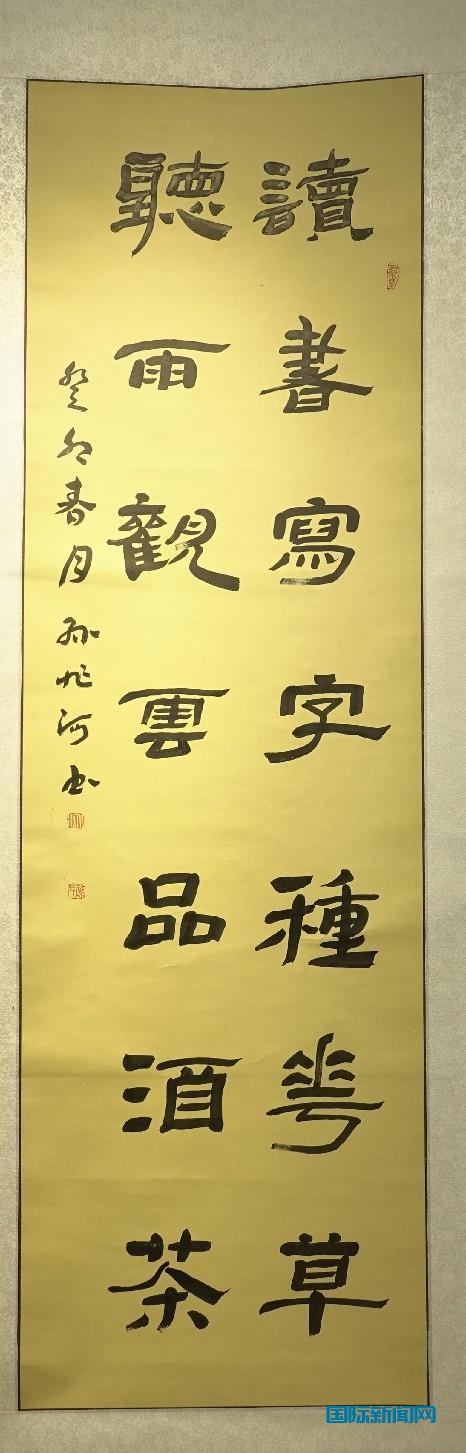 讀書寫字種花草
聽雨觀雲品酒茶
癸卯春月 孫 河书
国际新闻网